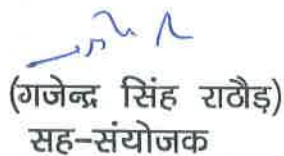 (गजेन्द्र सिंह राठौड़)
सह-संयोजक